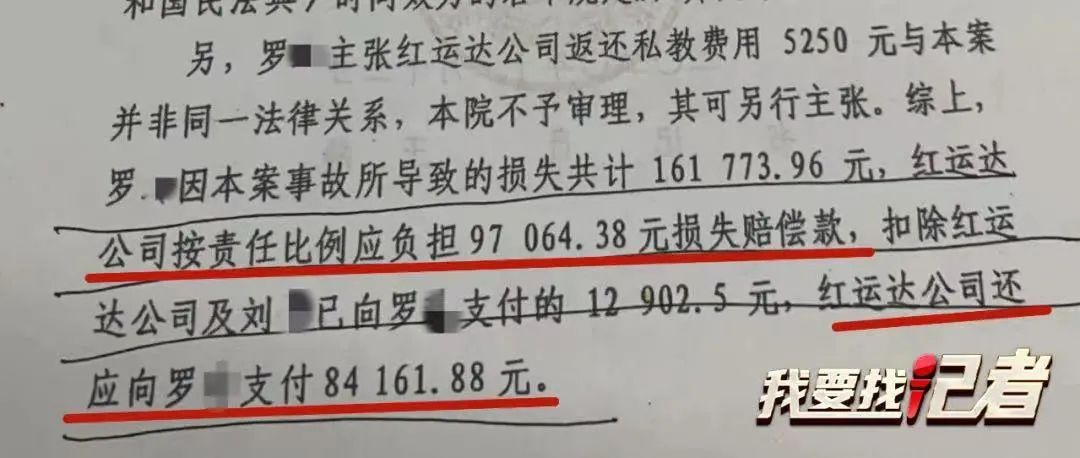 和国民法典》时间效力的若干规定
另，罗 主张红运达公司返还私教费用 5250 元与本案
并非同一法律关系，本院不予审理，其可另行主张。综上，
罗 因本案事故所导致的损失共计 161 773.96 元，红运达
公司按责任比例应负担 97 064.38 元损失赔偿款，扣除红运
达公司及刘 已向罗 支付的 12 902.5 元，红运达公司还
应向罗 支付 84 161.88 元。
我要找记者